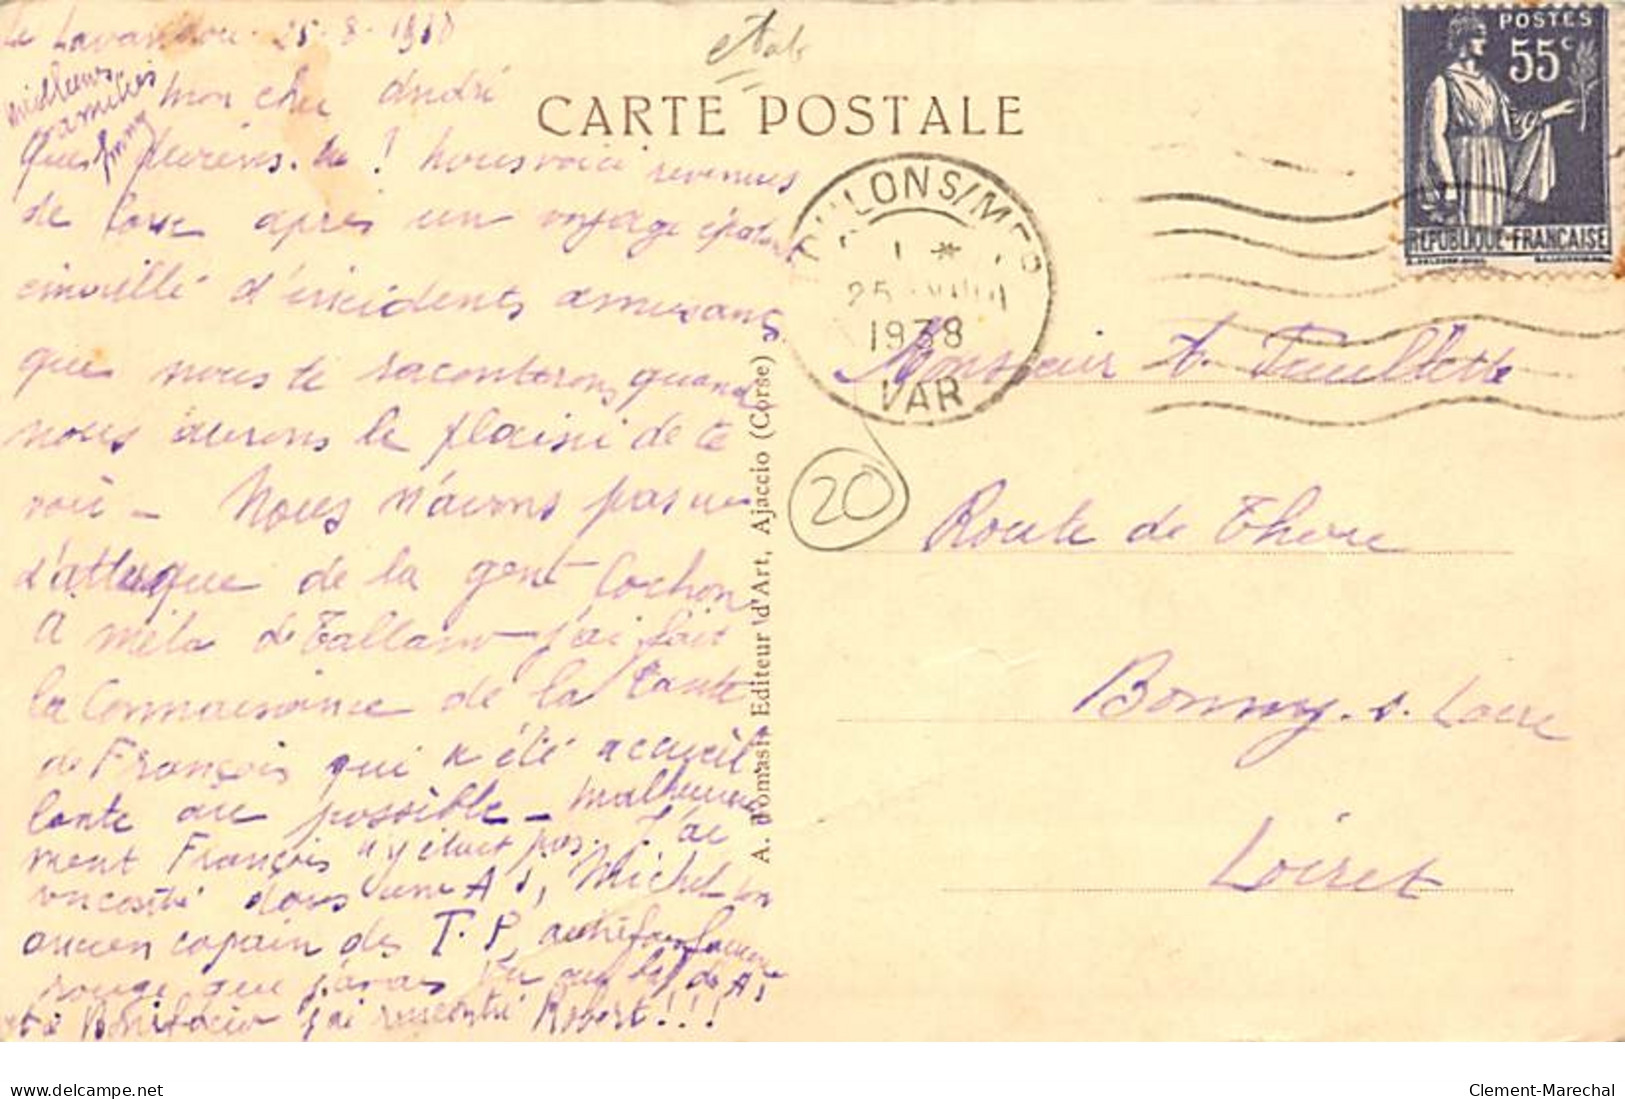 Le Lavandou 25-8-1938
meilleures
amitiés
Fanny
Mon cher André
Que deviens-tu ! Nous voici revenues
de Corse après un voyage épatant
émaillé d'incidents amusants
que nous te raconterons quand
nous aurons le plaisir de te
voir - Nous n'avons pas vu
d'attaque de la gent Cochon
A Mela di Tallano j'ai fait
la connaissance de la tante
de François qui a été accueil
lante au possible - Malheureuse
ment François n'y était pas. J'ai
rencontré dans une A J, Michel ton
ancien copain des T.P, autrefois
rouge que j'avais vu au bal des A J
et à Bonifacio j'ai rencontré Robert !!!
etab
CARTE POSTALE
A. Tomasi, Editeur d'Art, Ajaccio (Corse)
TOULON S/MER
25 VIII
1938
VAR
POSTES
55c
REPUBLIQUE FRANCAISE
Monsieur A. Feuillette
20
Route de Thou
Bonny-s-Loire
Loiret
delcampe.net
Clement-Marechal